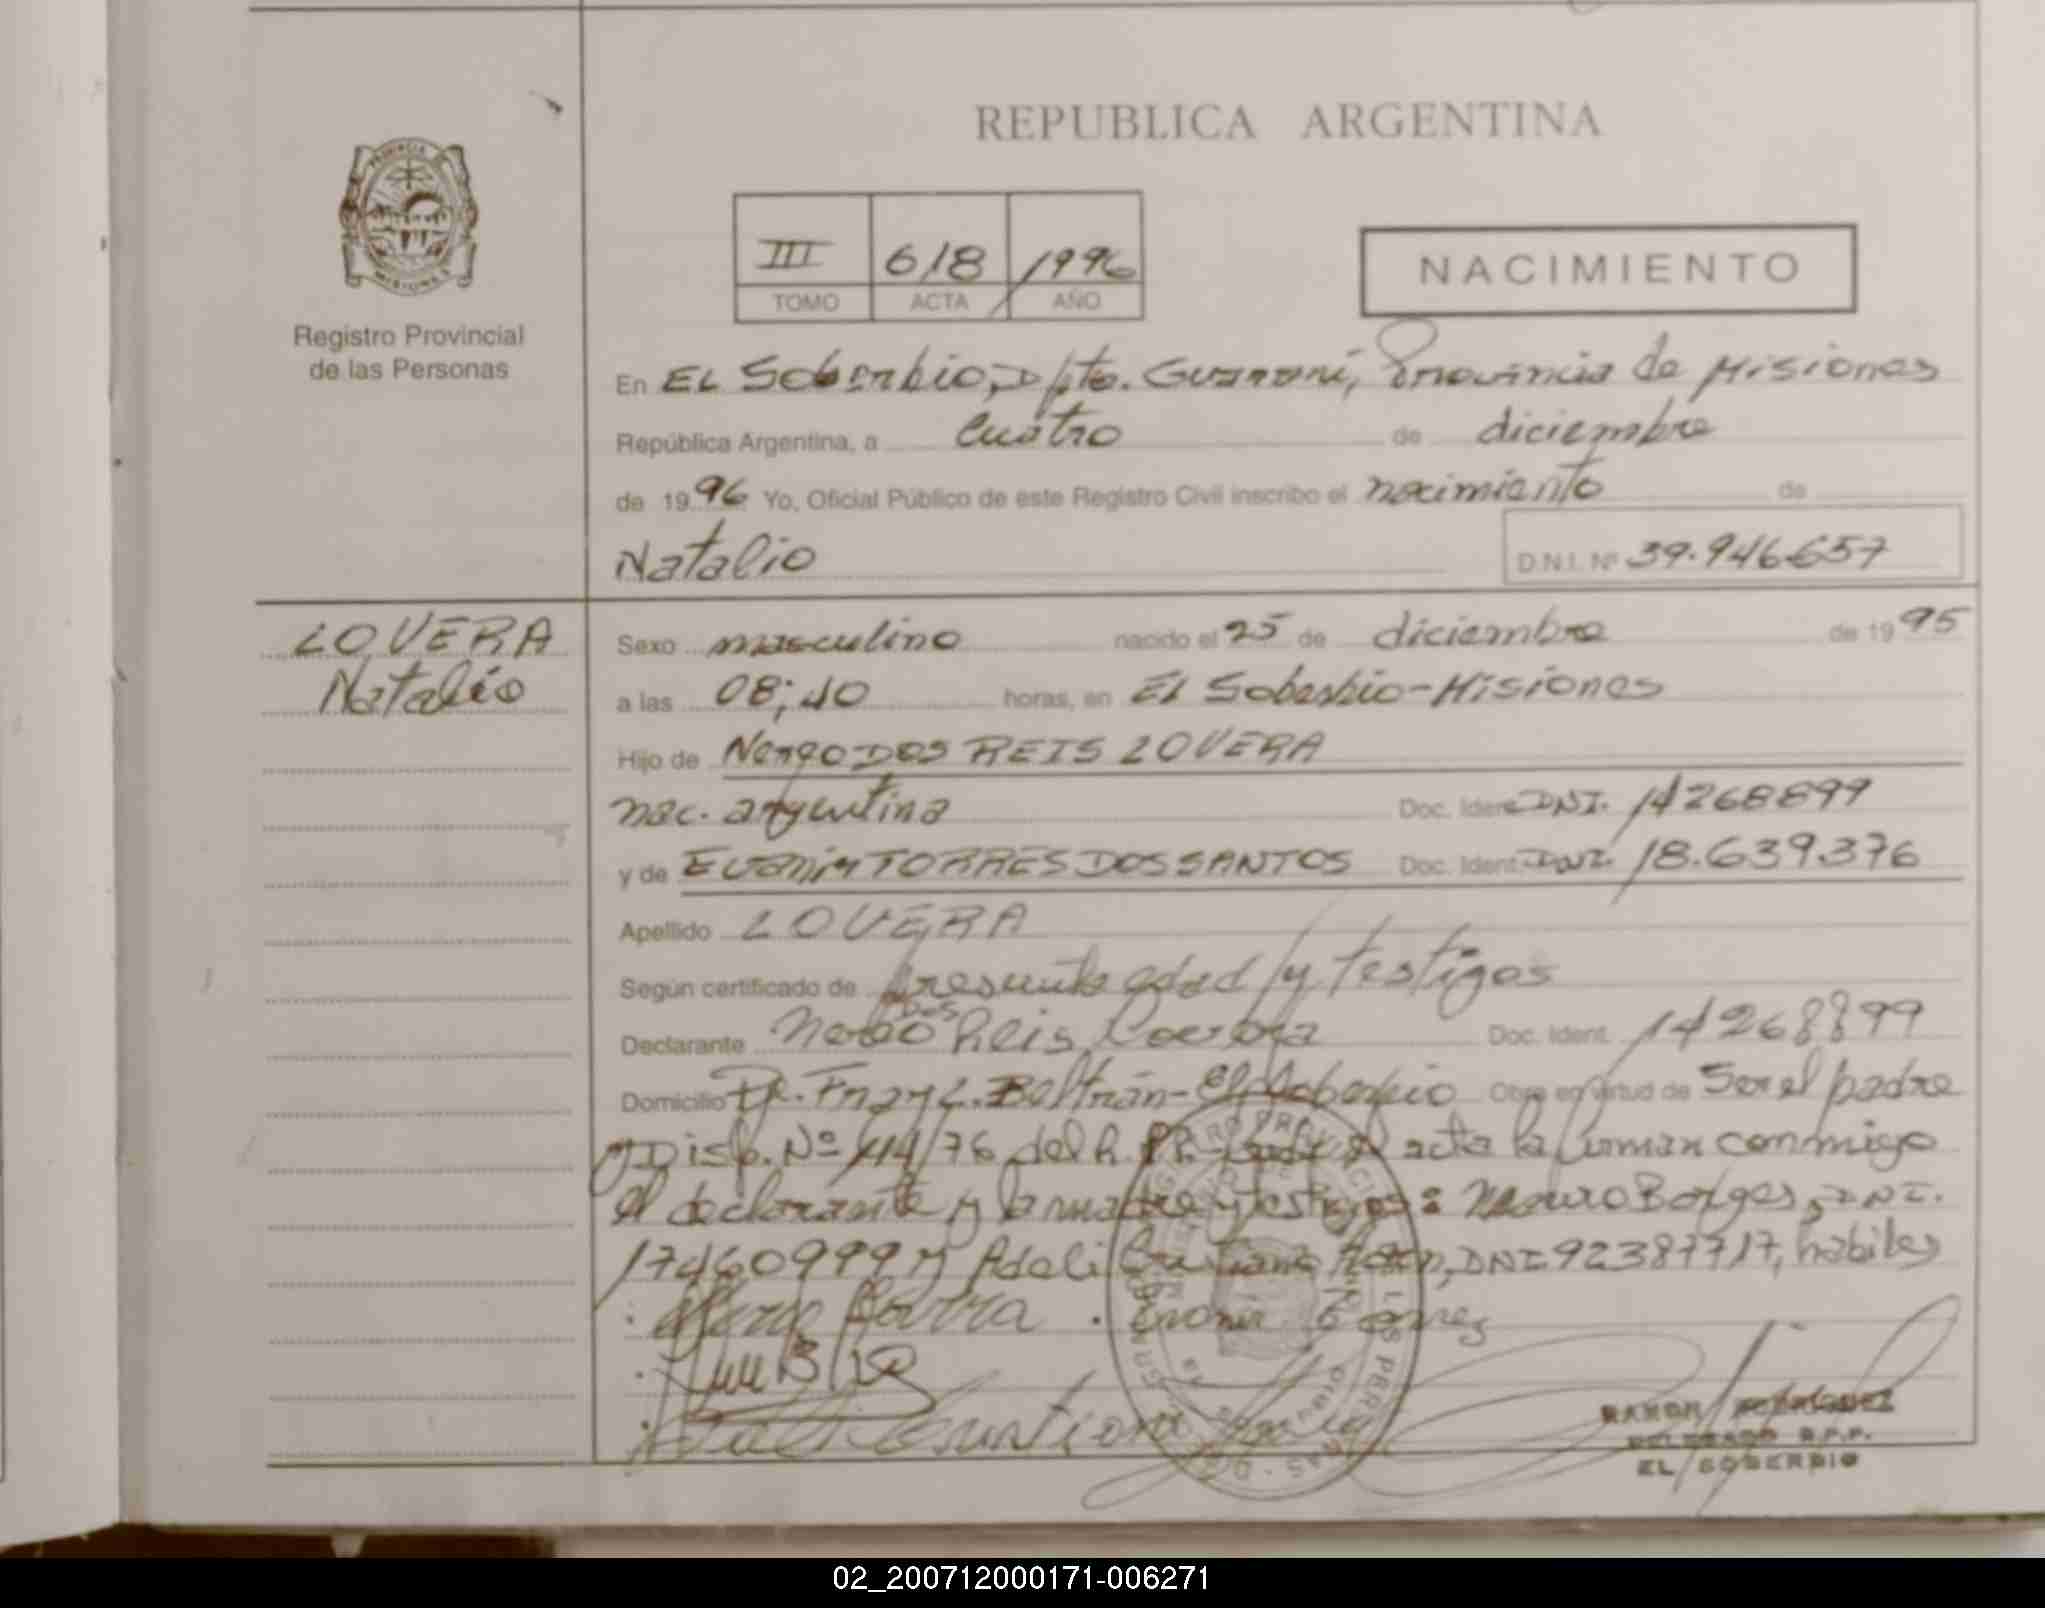 REPUBLICA ARGENTINA
PROVINCIA DE MISIONES
Registro Provincial
de las Personas
III 618 1996
TOMO ACTA AÑO
NACIMIENTO
En EL Soberbio, Dpto. Guarani, Provincia de Misiones
República Argentina, a cuatro de diciembre
de 1996 Yo, Oficial Público de este Registro Civil inscribo el nacimiento de
Natalio D.N.I. Nº 39.946.657
LOVERA
Natalio
Sexo masculino nacido el 25 de diciembre de 1995
a las 08:40 horas, en El Soberbio-Misiones
Hijo de DOS REIS LOVERA
nac. argentina Doc. Ident. DNI. 14268899
y de TORRES DOS SANTOS Doc. Ident. DNI. 18.639.376
Apellido LOVERA
Según certificado de presunta edad y testigos
Declarante dos Reis Lovera Doc. Ident. 14268899
Domicilio Fray L. Beltrán-El Soberbio Obra en virtud de Ser el padre
y Disp. Nº 414/76 del R.P.P. acta la firman conmigo
el declarante y la madre y testigos: Mauro Borges, DNI.
17460999 y Adeli DNI 92387717, habiles
RAMON RODRIGUEZ
DELEGADO R.P.P.
EL SOBERBIO
02_200712000171-006271